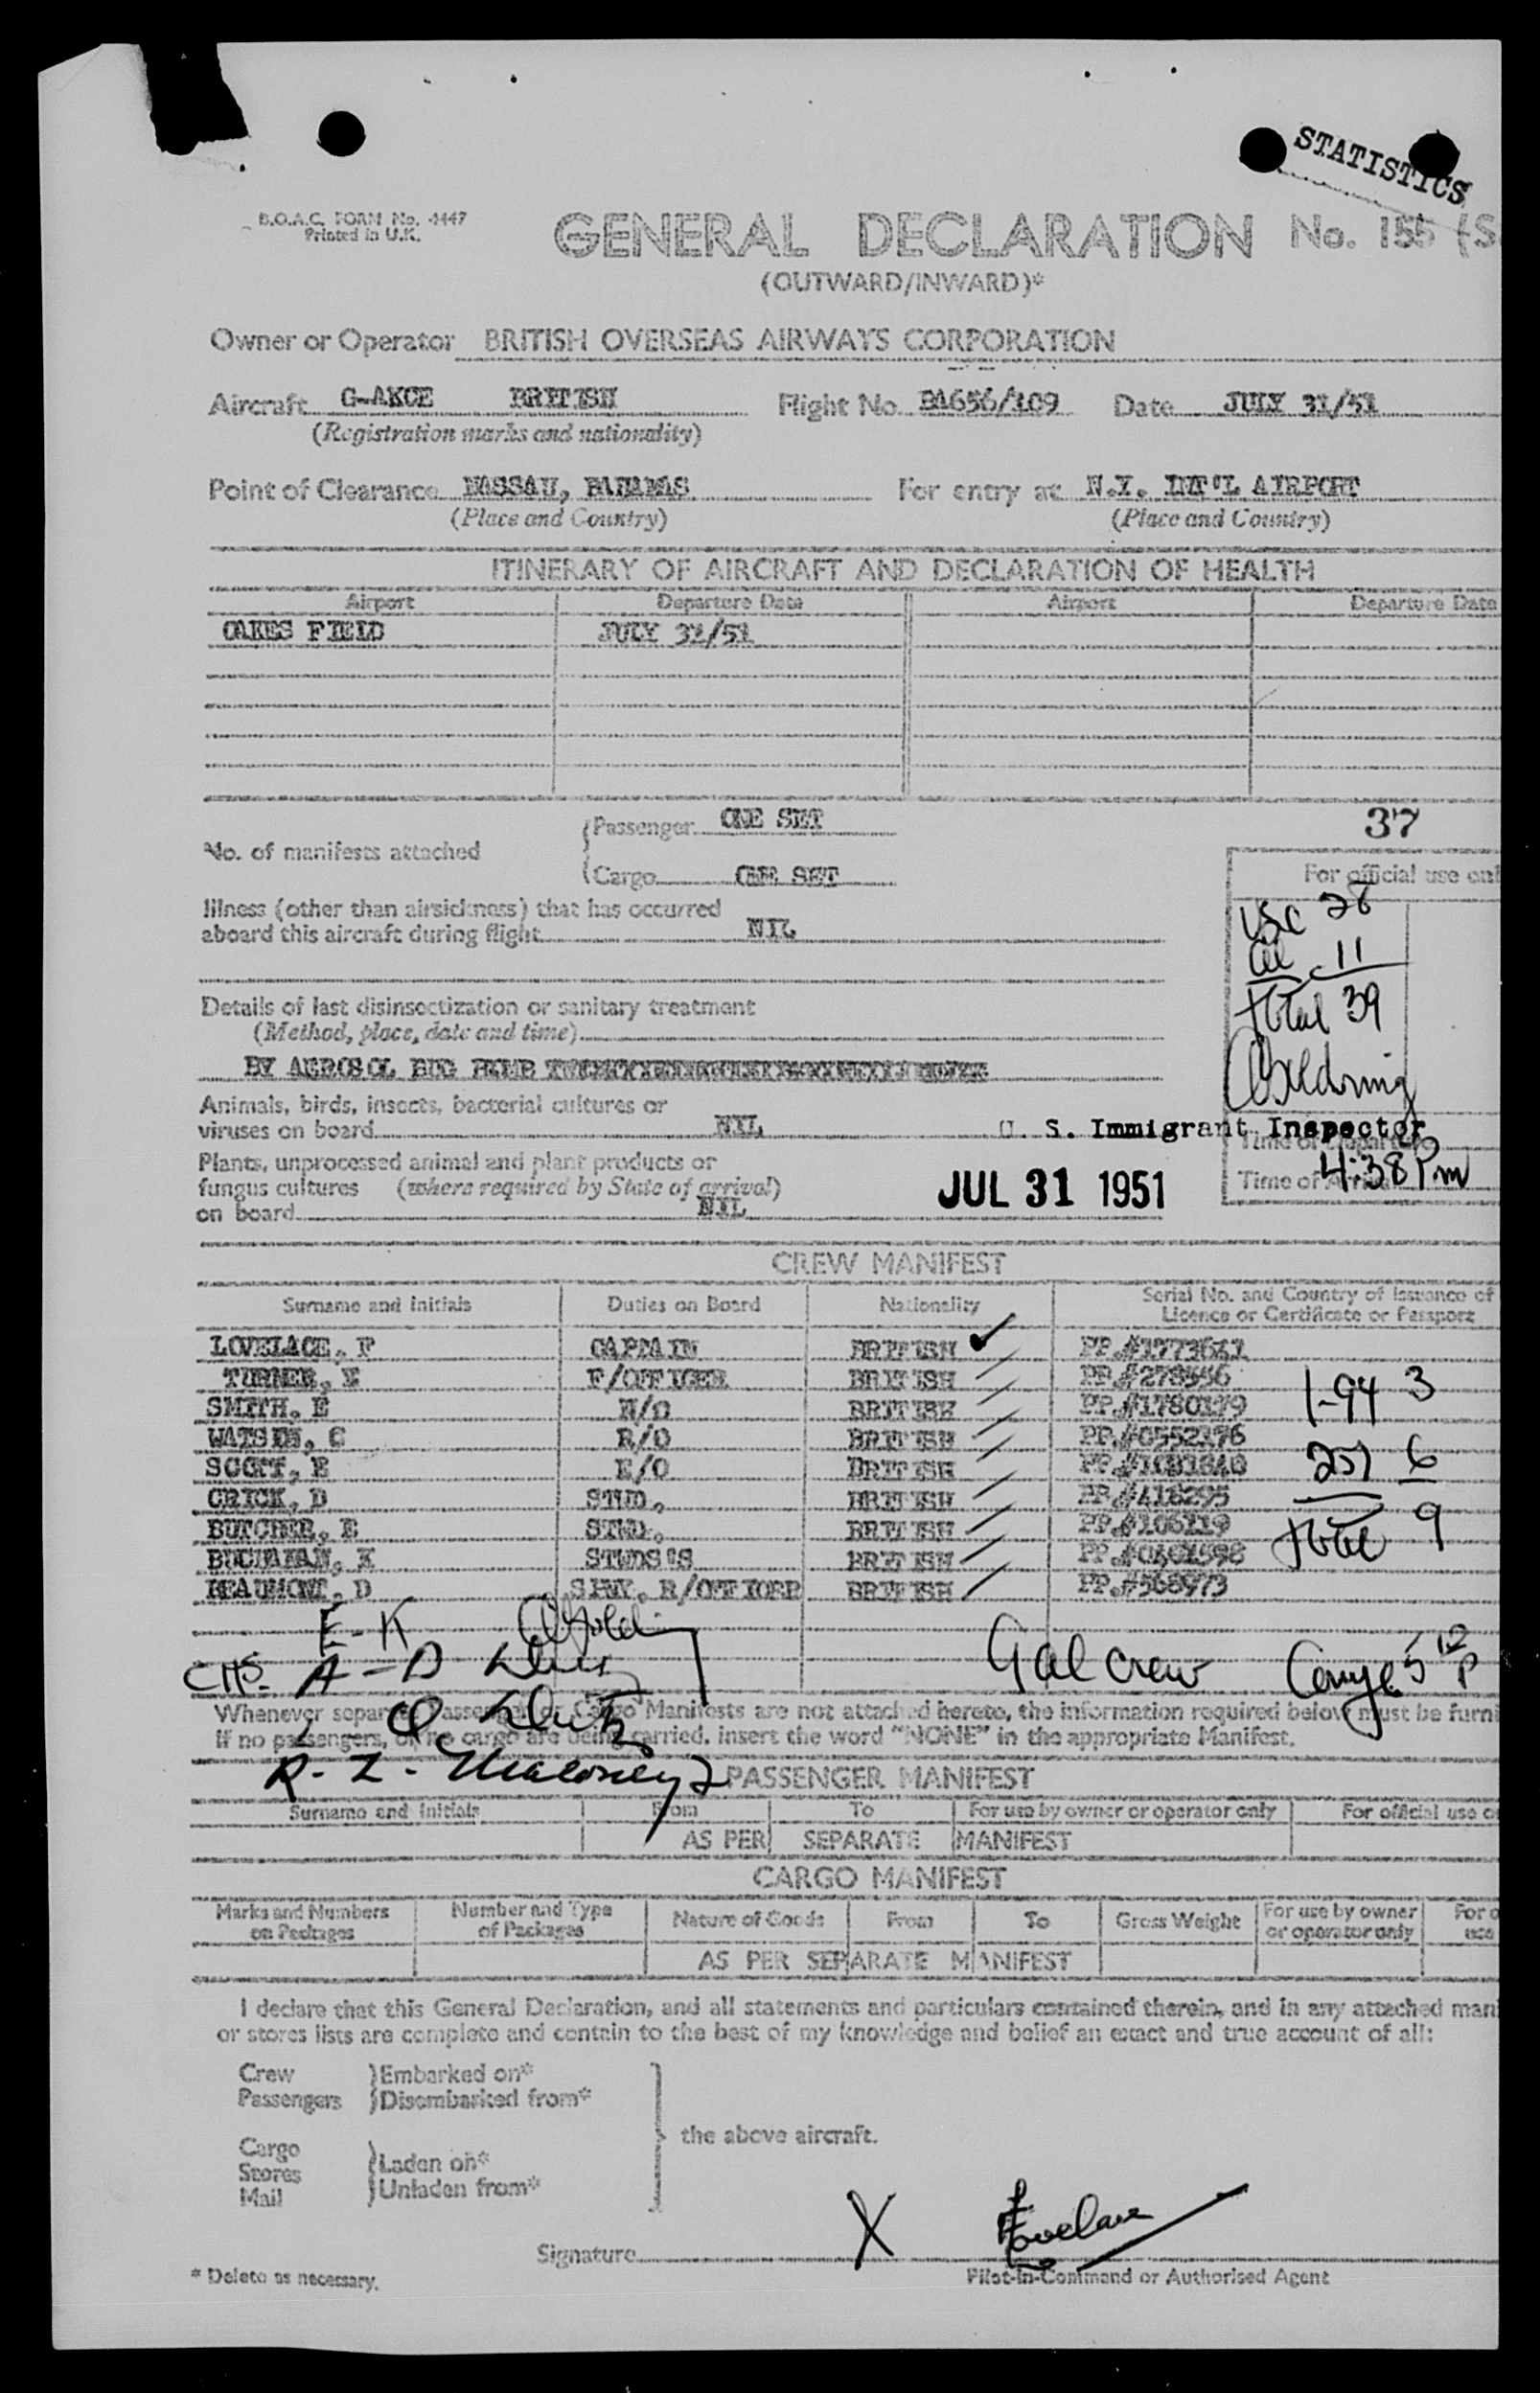 STATISTICS
B.O.A.C. FORM No. 4447
Printed in U.K.
GENERAL DECLARATION No. 155 (S
(OUTWARD/INWARD)*
Owner or Operator BRITISH OVERSEAS AIRWAYS CORPORATION
Aircraft G-AKCE BRITISH Flight No. BA656/109 Date JULY 31/51
(Registration marks and nationality)
Point of Clearance NASSAU, BAHAMAS For entry at N.Y. INT'L AIRPORT
(Place and Country) (Place and Country)
ITINERARY OF AIRCRAFT AND DECLARATION OF HEALTH
Airport Departure Date Airport Departure Date
OAKES FIELD JULY 31/51
No. of manifests attached
Passenger ONE SET
Cargo ONE SET
37
For official use onl
Illness (other than airsickness) that has occurred
aboard this aircraft during flight NIL
USC 28
al 11
total 39
Details of last disinsectization or sanitary treatment
(Method, place, date and time)
BY AEROSOL BUG BOMB
Animals, birds, insects, bacterial cultures or
viruses on board NIL
U. S. Immigrant Inspector
Time of Departure
Plants, unprocessed animal and plant products or
fungus cultures (where required by State of arrival)
on board NIL
JUL 31 1951
Time of Arrival 4:38 Pm
CREW MANIFEST
Surname and Initials Duties on Board Nationality Serial No. and Country of Issuance of
Licence or Certificate or Passport
LOVELACE, F CAPTAIN BRITISH PP.#1773641
TURNER, E F/OFFICER BRITISH PP.#278556
SMITH, E N/O BRITISH PP.#1780179
WATSON, C R/O BRITISH PP.#0552176
SCOTT, E E/O BRITISH
CRICK, D STWD. BRITISH PP.#418295
BUTCHER, E STWD. BRITISH PP.#106119
BUCHANAN, K STWDS'S BRITISH
BEAUMONT, D SPNY. R/OFFICER BRITISH PP.#568973
1-94 3
257 6
total 9
E-K
A-D
9 al crew
Whenever separate Passenger or Cargo Manifests are not attached hereto, the information required below must be furni
If no passengers, or no cargo are being carried, insert the word "NONE" in the appropriate Manifest.
R-Z- Maloney
PASSENGER MANIFEST
Surname and Initials From To For use by owner or operator only For official use o
AS PER SEPARATE MANIFEST
CARGO MANIFEST
Marks and Numbers on Packages Number and Type of Packages Nature of Goods From To Gross Weight For use by owner or operator only For o use
AS PER SEPARATE MANIFEST
I declare that this General Declaration, and all statements and particulars contained therein, and in any attached mani
or stores lists are complete and contain to the best of my knowledge and belief an exact and true account of all:
Crew Embarked on*
Passengers Disembarked from*
the above aircraft.
Cargo
Stores Laden on*
Mail Unladen from*
X F Lovelace
Signature
Pilot-in-Command or Authorised Agent
* Delete as necessary.